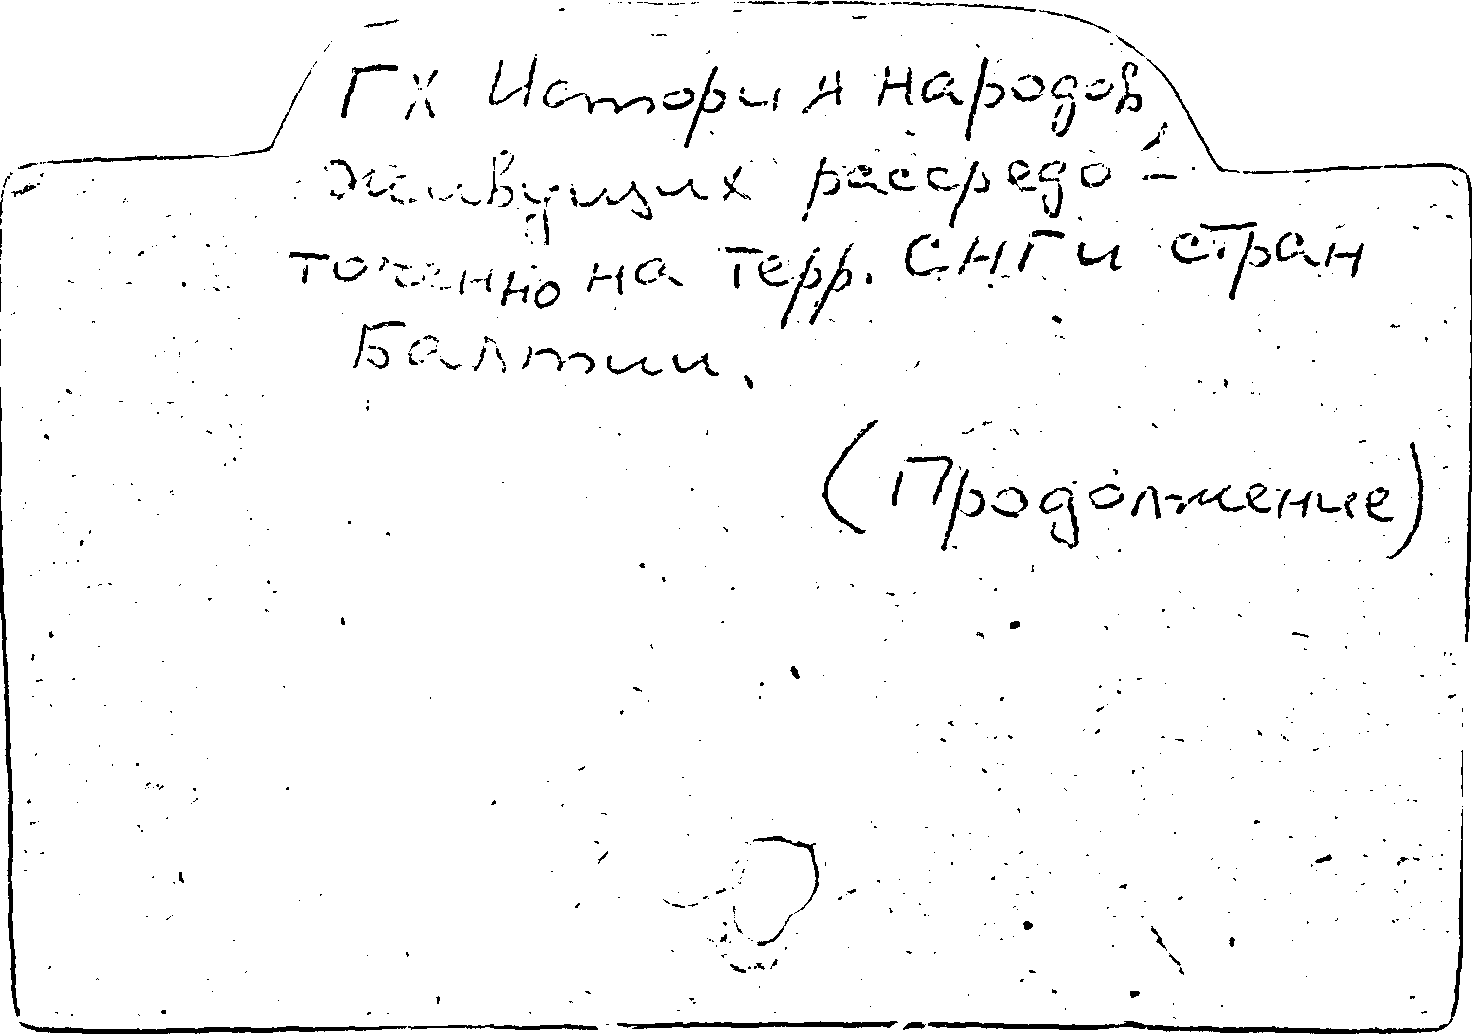 ГХ История народов,
живущих рассредо-
точенно на терр. СНГ и стран
Балтии.
(Продолжение)